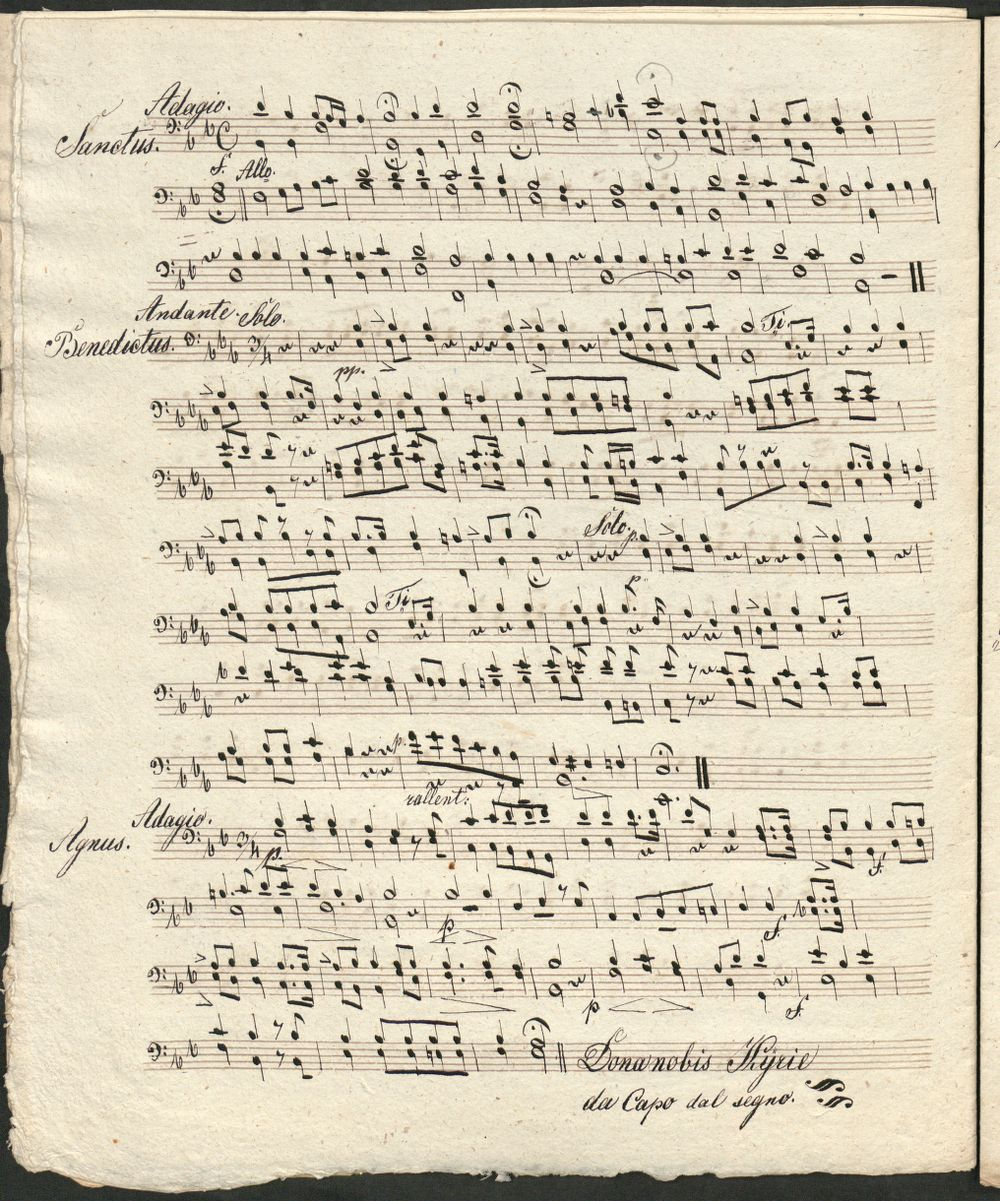 Adagio.
Sanctus.
f. Allo.
Andante. Solo. Ti.
Benedictus. 3/4
pp.
Solo. p.
p
Ti.
p.
rallent:
Adagio.
Agnus. 3/4 p.
f.
p f.
p f.
Dona nobis Kyrie
da Capo dal segno.